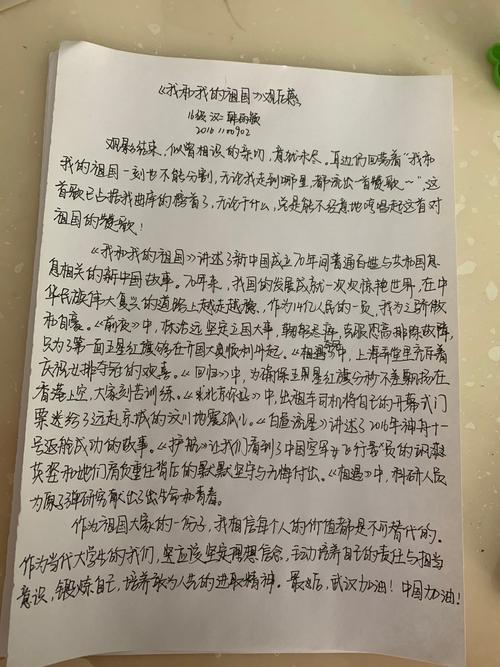 《我和我的祖国》观后感
16级 汉二
2016
观影结束，似曾相识的亲切，意犹未尽。耳边仍回荡着“我和
我的祖国一刻也不能分割，无论我走到哪里，都流出一首赞歌～”，这
首歌已占据我曲库的榜首了，无论干什么，总是能不经意地哼唱起这首对
祖国的赞歌！
《我和我的祖国》讲述了新中国成立70年间普通百姓与共和国息
息相关的新中国故事。70年来，我国的发展成就一次次惊艳世界，在中
华民族伟大复兴的道路上越走越稳，作为14亿人民的一员，我为之骄傲
和自豪。《前夜》中，林治远坚定立国大事，克服恐高排除故障，
只为了第一面五星红旗能够在开国大典顺利升起。《相遇》中，上海弄堂里充斥着
庆祝女排夺冠的欢喜。《回归》中，为确保五星红旗分秒不差飘扬在
香港上空，大家刻苦训练。《北京你好》中，出租车司机将自己的开幕式门
票送给了远赴京城的汶川地震孤儿。《白昼流星》讲述了2016年神舟十一
号返航成功的故事。《护航》让我们看到了中国空军女飞行员的飒爽
英姿和她们肩负重任背后的默默坚守与无悔付出。《相遇》中，科研人员
为原子弹研究献出了生命和青春。
作为祖国大家的一份子，我相信每个人的价值都是不可替代的。
作为当代大学生的我们，更应该坚定理想信念，主动培养自己的责任与担当
意识，锻炼自己，培养敢为人先的进取精神。最后，武汉加油！中国加油！